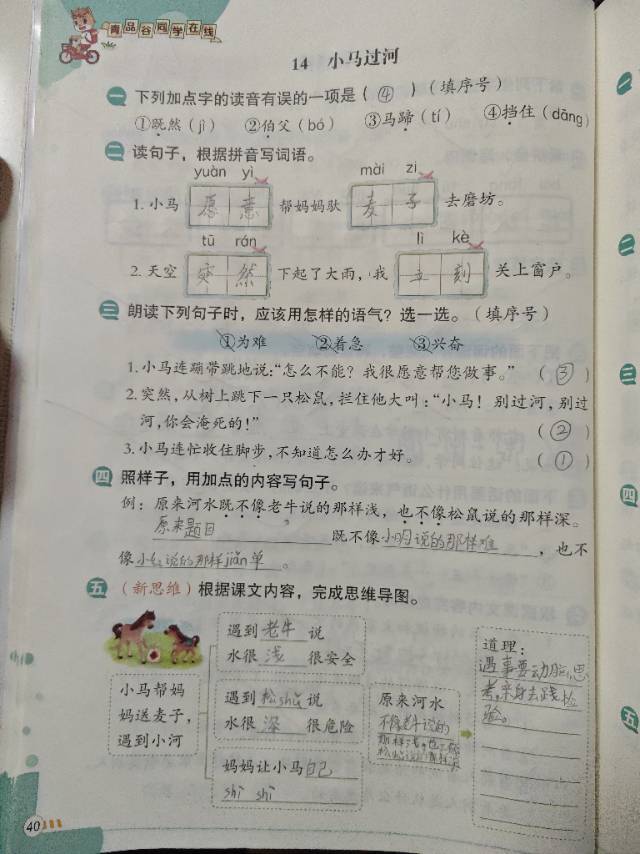 青品谷同学在线
14 小马过河
一 下列加点字的读音有误的一项是(④)(填序号)
①既然(jì) ②伯父(bó) ③马蹄(tí) ④挡住(dāng)
二 读句子，根据拼音写词语。
yuàn yì mài zi
1.小马 愿意 帮妈妈驮 麦子 去磨坊。
tū rán lì kè
2.天空 突然 下起了大雨，我 立刻 关上窗户。
三 朗读下列句子时，应该用怎样的语气？选一选。(填序号)
①为难 ②着急 ③兴奋
1.小马连蹦带跳地说:“怎么不能？我很愿意帮您做事。” (③)
2.突然，从树上跳下一只松鼠，拦住他大叫:“小马！别过河，别过
河，你会淹死的！” (②)
3.小马连忙收住脚步，不知道怎么办才好。 (①)
四 照样子，用加点的内容写句子。
例：原来河水既不像老牛说的那样浅，也不像松鼠说的那样深。
原来题目 既不像小明说的那样难，也不
像小红说的那样jiǎn单。
五 (新思维)根据课文内容，完成思维导图。
小马帮妈
妈送麦子，
遇到小河
遇到老牛说
水很浅很安全
遇到松shǔ说
水很深很危险
妈妈让小马自己
shì shì
原来河水
不像老牛说的
那样浅，也不像
松鼠说的那样深
道理：
遇事要动脑思
考，亲身去践检
验。
40